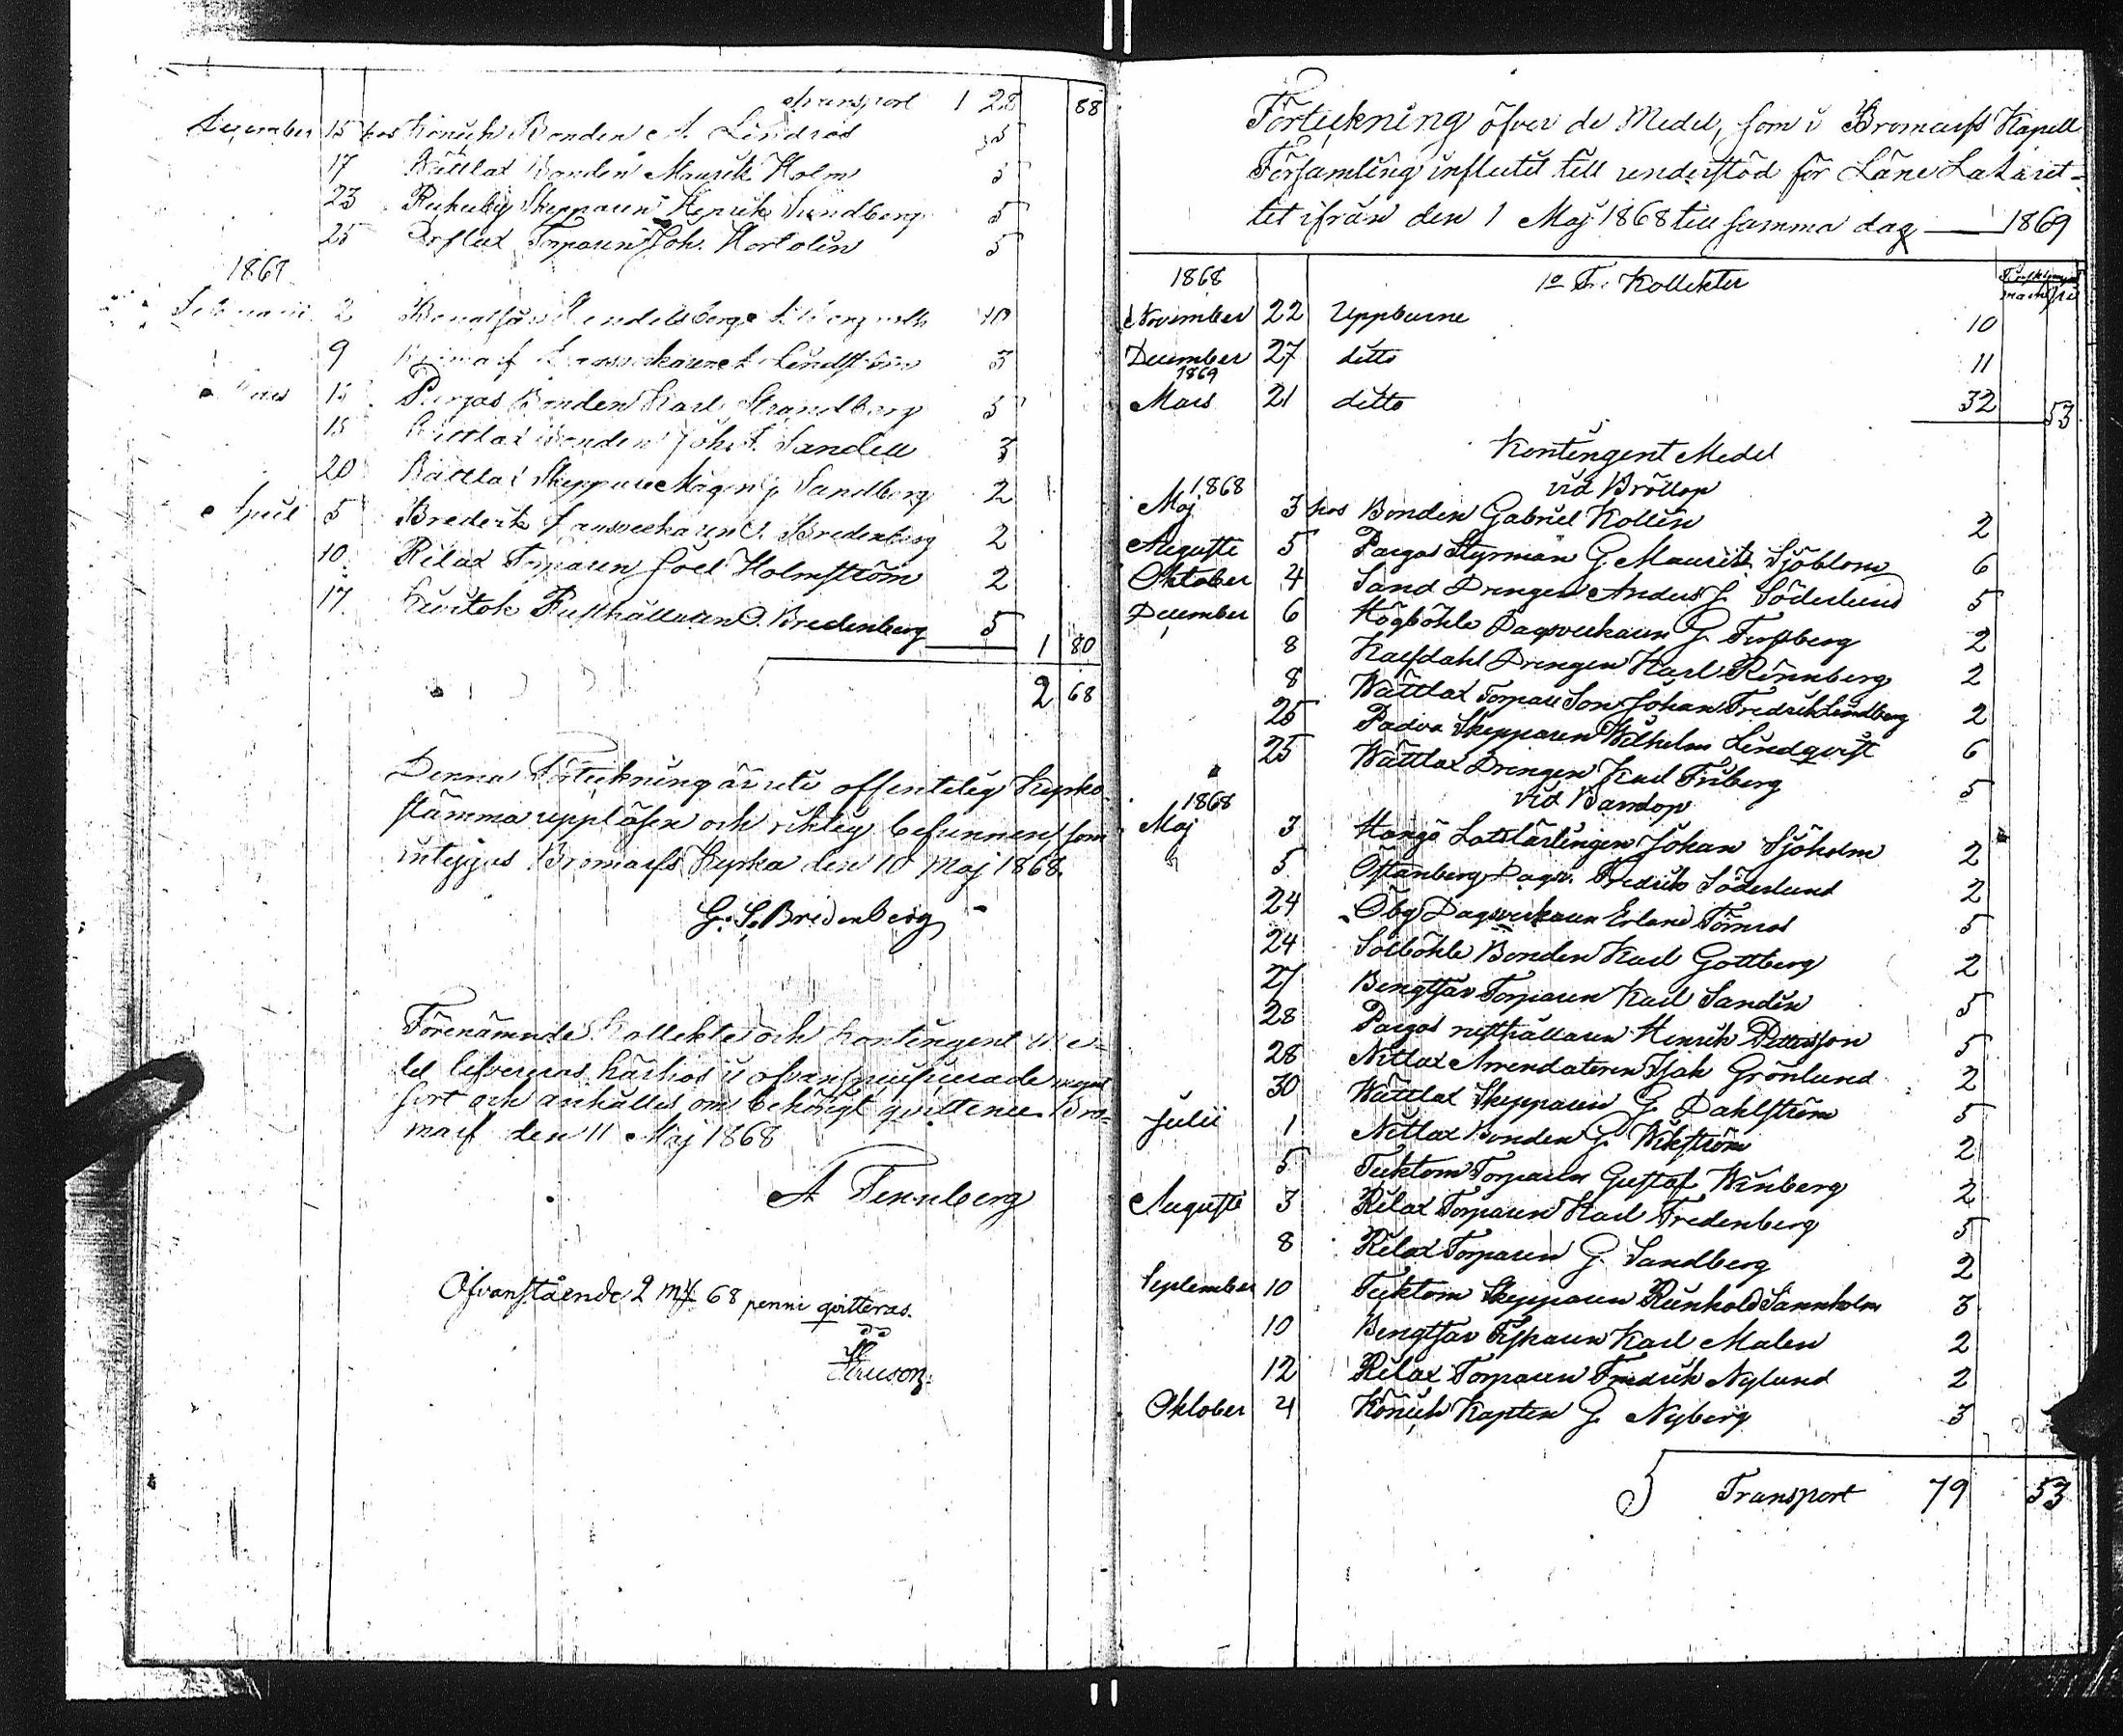 Transport 1 28 88
December 15 hos Könick Bonden A. Lindros 35
17 Wättlax Bonden Maurits Holm 5
23 Rukuby Skepparen Henrik Sundberg 5
25 Torpparen Joh. Hortolin 5
1868
Februarii 2 10
9 Lindström 3
Mars 15 Purgas Bonden Karl Strandberg 5
15 Wättlax Bonden Joh. F. Sandell 3
20 Wättlax Skeppare Magn. J. Sandberg 2
April 5 Bredvik Bredenberg 2
10 Rilax Torparen Joel Holmström 2
17 Rusthållaren Bredenberg 5 1 80
2 68
Denna Förteckning är uti offentelig Kyrko-
stämma uppläsen och riktig befunnen, som
intygas Bromarfs Kyrka den 10 Maj 1868.
G. S. Bredenberg
Förenämnde Kollekte och Kontingent Me-
del lefvereras härhos i ofvanspecificerade
sort och anhålles om behörigt qvittence. Bro-
marf den 11 Maj 1868
A Tennberg
Ofvanstående 2 Mk 68 penni qvitteras.
Förteckning öfver de Medel, som i Bromarfs Kapell
Församling influtit till understöd för Läne Lazaret-
tet ifrån den 1 Maj 1868 till samma dag — 1869
1868 1o Fr. Kollekter
November 22 Uppburne 10
December 27 ditto 11
1869
Mars 21 ditto 32 53
Kontingent Medel
vid Bröllop
1868
Maj 3 hos Bonden Gabriel Kollin 2
Augusti 5 Pargas Styrman G. Maurits Sjöblom 6
Oktober 4 Sand Drengen Anders J. Söderlund 5
December 6 Högböhle Dagsverkaren G. Forsberg 2
8 Kalfdahl Drengen Karl Rönnberg 2
8 Wättlax Torpare Son Johan Fredrik Lindberg 2
25 Padva Skepparen Wilhelm Lindqvist 6
25 Wättlax Drengen Karl Friberg 5
vid Barndop
1868
Maj 3 Hangö Lotslärlingen Johan Sjöholm 2
5 Östanberg Dagsv. Fredrik Söderlund 2
24 Öby Dagsverkaren Erland Törnros 5
24 Solböhle Bonden Karl Gottberg 2
27 Bengtsår Torparen Karl Sandin 5
28 Pargas rusthållaren Henrik Pettersson 5
28 Nitlax Arrendatoren Isak Grönlund 2
30 Wättlax Skepparen G. Dahlström 5
Julii 1 Nitlax Bonden G. Wikström 2
5 Tucktom Torparen Gustaf Winberg 2
Augusti 3 Rilax Torparen Karl Fredenberg 5
8 Rilax Torparen G. Sandberg 2
September 10 Tucktom Skepparen Reinhold Sannholm 3
10 Bengtsår Karl Malen 2
12 Rilax Torparen Fredrik Nylund 2
Oktober 4 Könick Kapten G. Nyberg 3
Transport 79 53